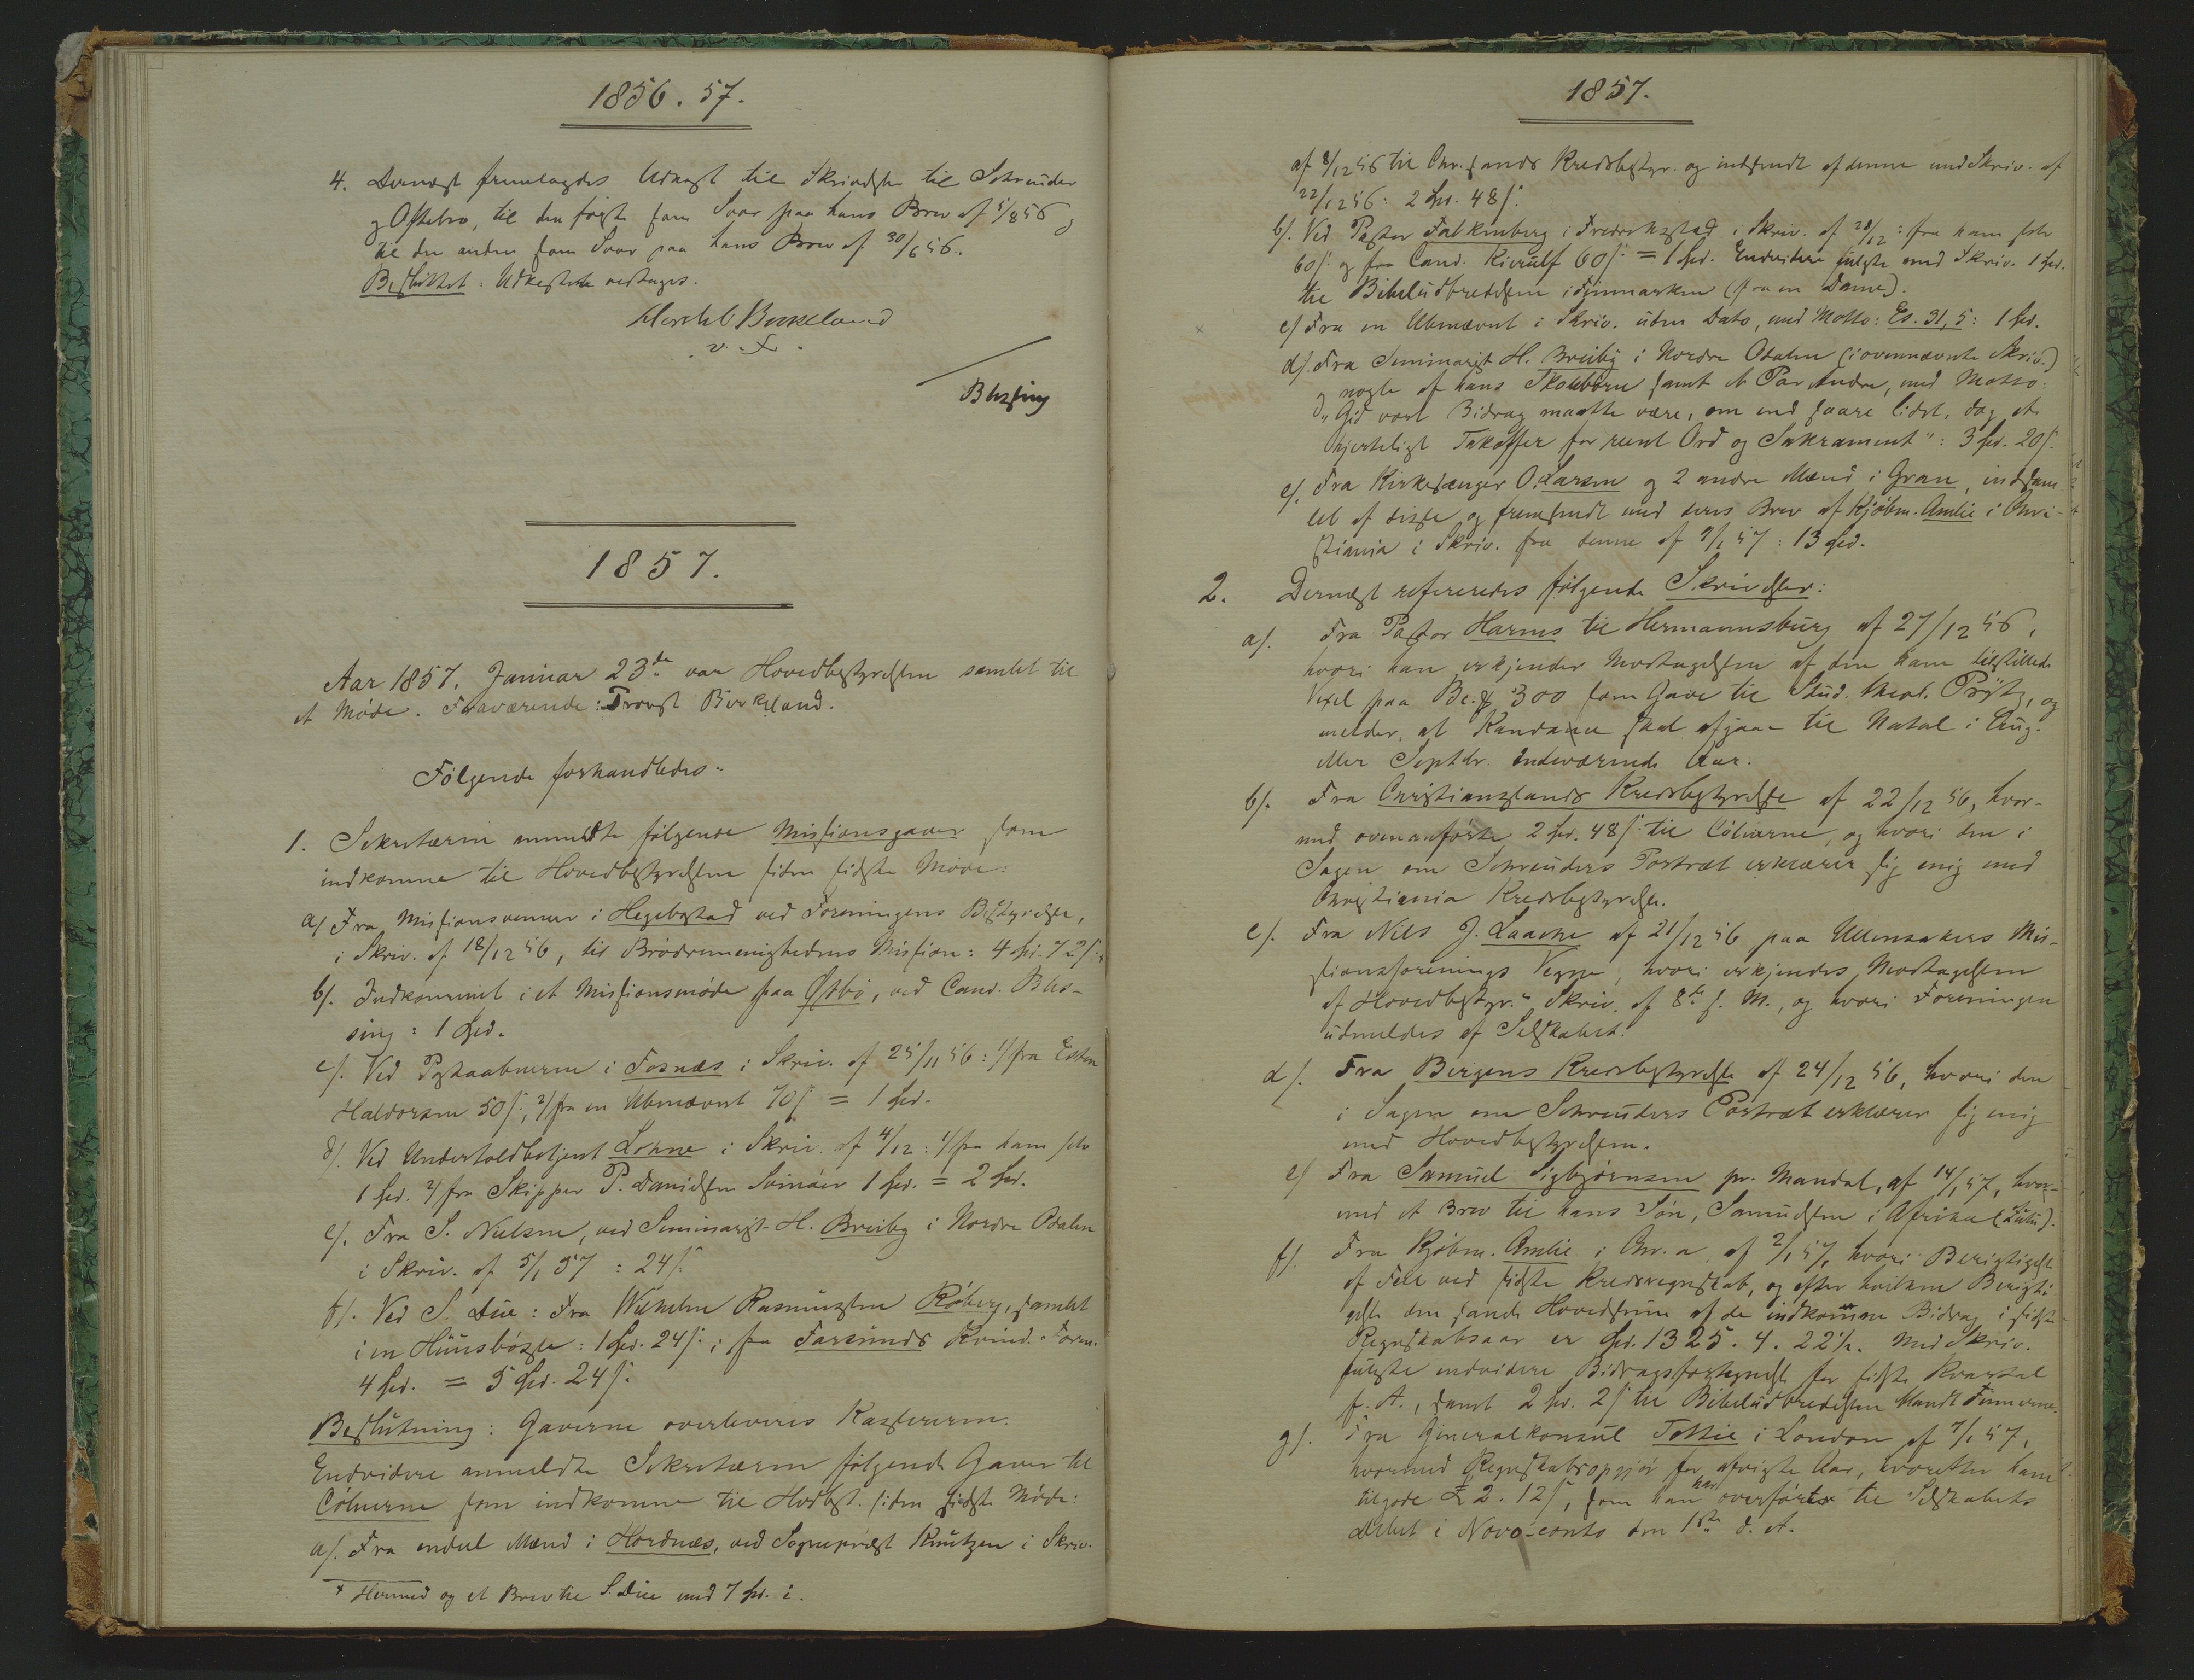 1856. 57.
4. Dernæst fremlagdes Udkast til Skrivelser til Schreuder
og Oftebro, til den første som Svar paa hans Brev af 5/8 56 og
til den anden som Svar paa hans Brev af 30/6 56.
Besluttet: Udkastene vedtages.
Birkeland
v. F.
Blessing
1857.
Aar 1857. Januar 23de var Hovedbestyrelsen samlet til
et Möde. Fraværende: Provst Birkeland.
Følgende forhandledes:
1. Sekretæren anmeldte følgende Missionsgaver som
indkomne til Hovedbestyrelsen siden sidste Möde:
a/. Fra Missionsvenner i Hegebostad ved Foreningens Bestyrelse,
i Skriv. af 18/12 56, til Brödremenighedens Mission: 4 Spd. 72 ſ.
b/. Indkommet i et Missionsmöde paa Østbö, ved Cand. Bles-
sing: 1 Spd.
c/. Ved Postaabneren i Fosnæs i Skriv. af 25/11 56: 1/ fra Esten
Haldorsen 50 ſ., 2/ fra en Ubenævnt 70 ſ = 1 Spd.
d/. Ved Undertoldbetjent Lohne i Skriv. af 4/12: 1/ fra ham selv
1 Spd. 2/ fra Skipper P. Danielsen Svinöer 1 Spd. = 2 Spd.
e/. Fra S. Nielsen, ved Seminarist H. Breiby i Nordre Odalen
i Skriv. af 5/1 57: 24 ſ.
f/. Ved S. Due: Fra Wilhelm Rasmussen Röberg, samlet
i en Huusbösse: 1 Spd. 24 ſ.; fra Farsunds Kvind. Foren.
4 Spd. = 5 Spd. 24 ſ.
Beslutning: Gaverne overleveres Kassereren.
Endvidere anmeldte Sekretæren følgende Gaver til
Cölnerne som indkomne til Hovdbst. siden sidste Möde:
a/. Fra endel Mænd i Hordnæs, ved Sognepræst Knutzen i Skriv.
+ Hermed og et Brev til S. Due med 7 Spd. i.
1857.
af 8/12 56 til Chr.sands Kredsbestyr. og indsendt af denne med Skriv. af
22/12 56: 2 Spd. 48 ſ.
b/. Ved Pastor Falkenberg i Frederikstad i Skriv. af 28/12: fra ham selv
60 ſ. og fra Cand. Kierulf 60 ſ. = 1 Spd. Endvidere fulgte med Skriv. 1 Spd.
til Bibeludbredelsen i Finmarken (fra en Dame).
c/. Fra en Ubenævnt i Skriv. uden Dato, med Motto: Es. 31, 5: 1 Spd.
d/. Fra Seminarist H. Breiby i Nordre Odalen (i ovennævnte Skriv.)
og nogle af hans Skolebörn samt et Par Andre, med Motto:
"Gid vort Bidrag maatte være, om end saare lidet, dog et
hjerteligt Takoffer for reent Ord og Sakrament": 3 Spd. 20 ſ.
e/. Fra Kirkesanger O. Larsen og 2 andre Mænd i Gran, indsam
let af disse og fremsendt med deres Brev af Kjöbm. Amlie i Chri-
stiania i Skriv. fra denne af 2/1 57: 13 Spd.
2. Dernæst refereredes følgende Skrivelser:
a/. Fra Pastor Harms til Hermannsburg af 27/12 56,
hvori han erkjender Modtagelsen af den ham tilstillede
Vexel paa Bc.# 300 som Gave til Stud. theol. Prÿtz, og
melder, at Kandace skal afgaae til Natal i Aug.
eller Septbr. indeværende Aar.
b/. Fra Christianssands Kredsbestyrelse af 22/12 56, hvor-
med ovenanførte 2 Spd. 48 ſ. til Cölnerne, og hvori den i
Sagen om Schreuders Portræt erklærer sig enig med
Christiania Kredsbestyrelse.
c/. Fra Nils J. Laache af 21/12 56 paa Ullensakers Mis-
sionsforenings Vegne, hvori erkjendes Modtagelsen
af Hovedbestyr.s Skriv. af 8de s. M., og hvori Foreningen
udmeldes af Selskabet.
d/. Fra Bergens Kredsbestyrelse af 24/12 56, hvori den
i Sagen om Schreuders Portræt erklærer sig enig
med Hovedbestyrelsen.
e/. Fra Samuel Sigbjørnsen pr. Mandal, af 14/1 57, hvor-
med et Brev til hans Sön, Samuelsen i Afrika (Zulu).
f/. Fra Kjöbm. Amlie i Chr.a af 2/1 57, hvori Berigtigelse
af Feil ved sidste Kredsregnskab, og efter hvilken Berigti-
gelse den sande Hovedsum af de indkomne Bidrag i sidste
Regnskabsaar er Spd. 1325. 4. 22 ½. Med Skriv.
fulgte endvidere Bidragsfortegnelse for sidste Kvartal
f. A., samt 2 Spd. 2 ſ til Bibeludbredelsen blandt Finnerne.
g/. Fra Generalkonsul Tottie i London af 7/1 57,
hvormed Regnskabsopgjör for afvigte Aar, hvorefter ham
tilgode £ 2. 12 ſ, som han har overført til Selskabets
Debet i Novo-conto den 1ste d. A.